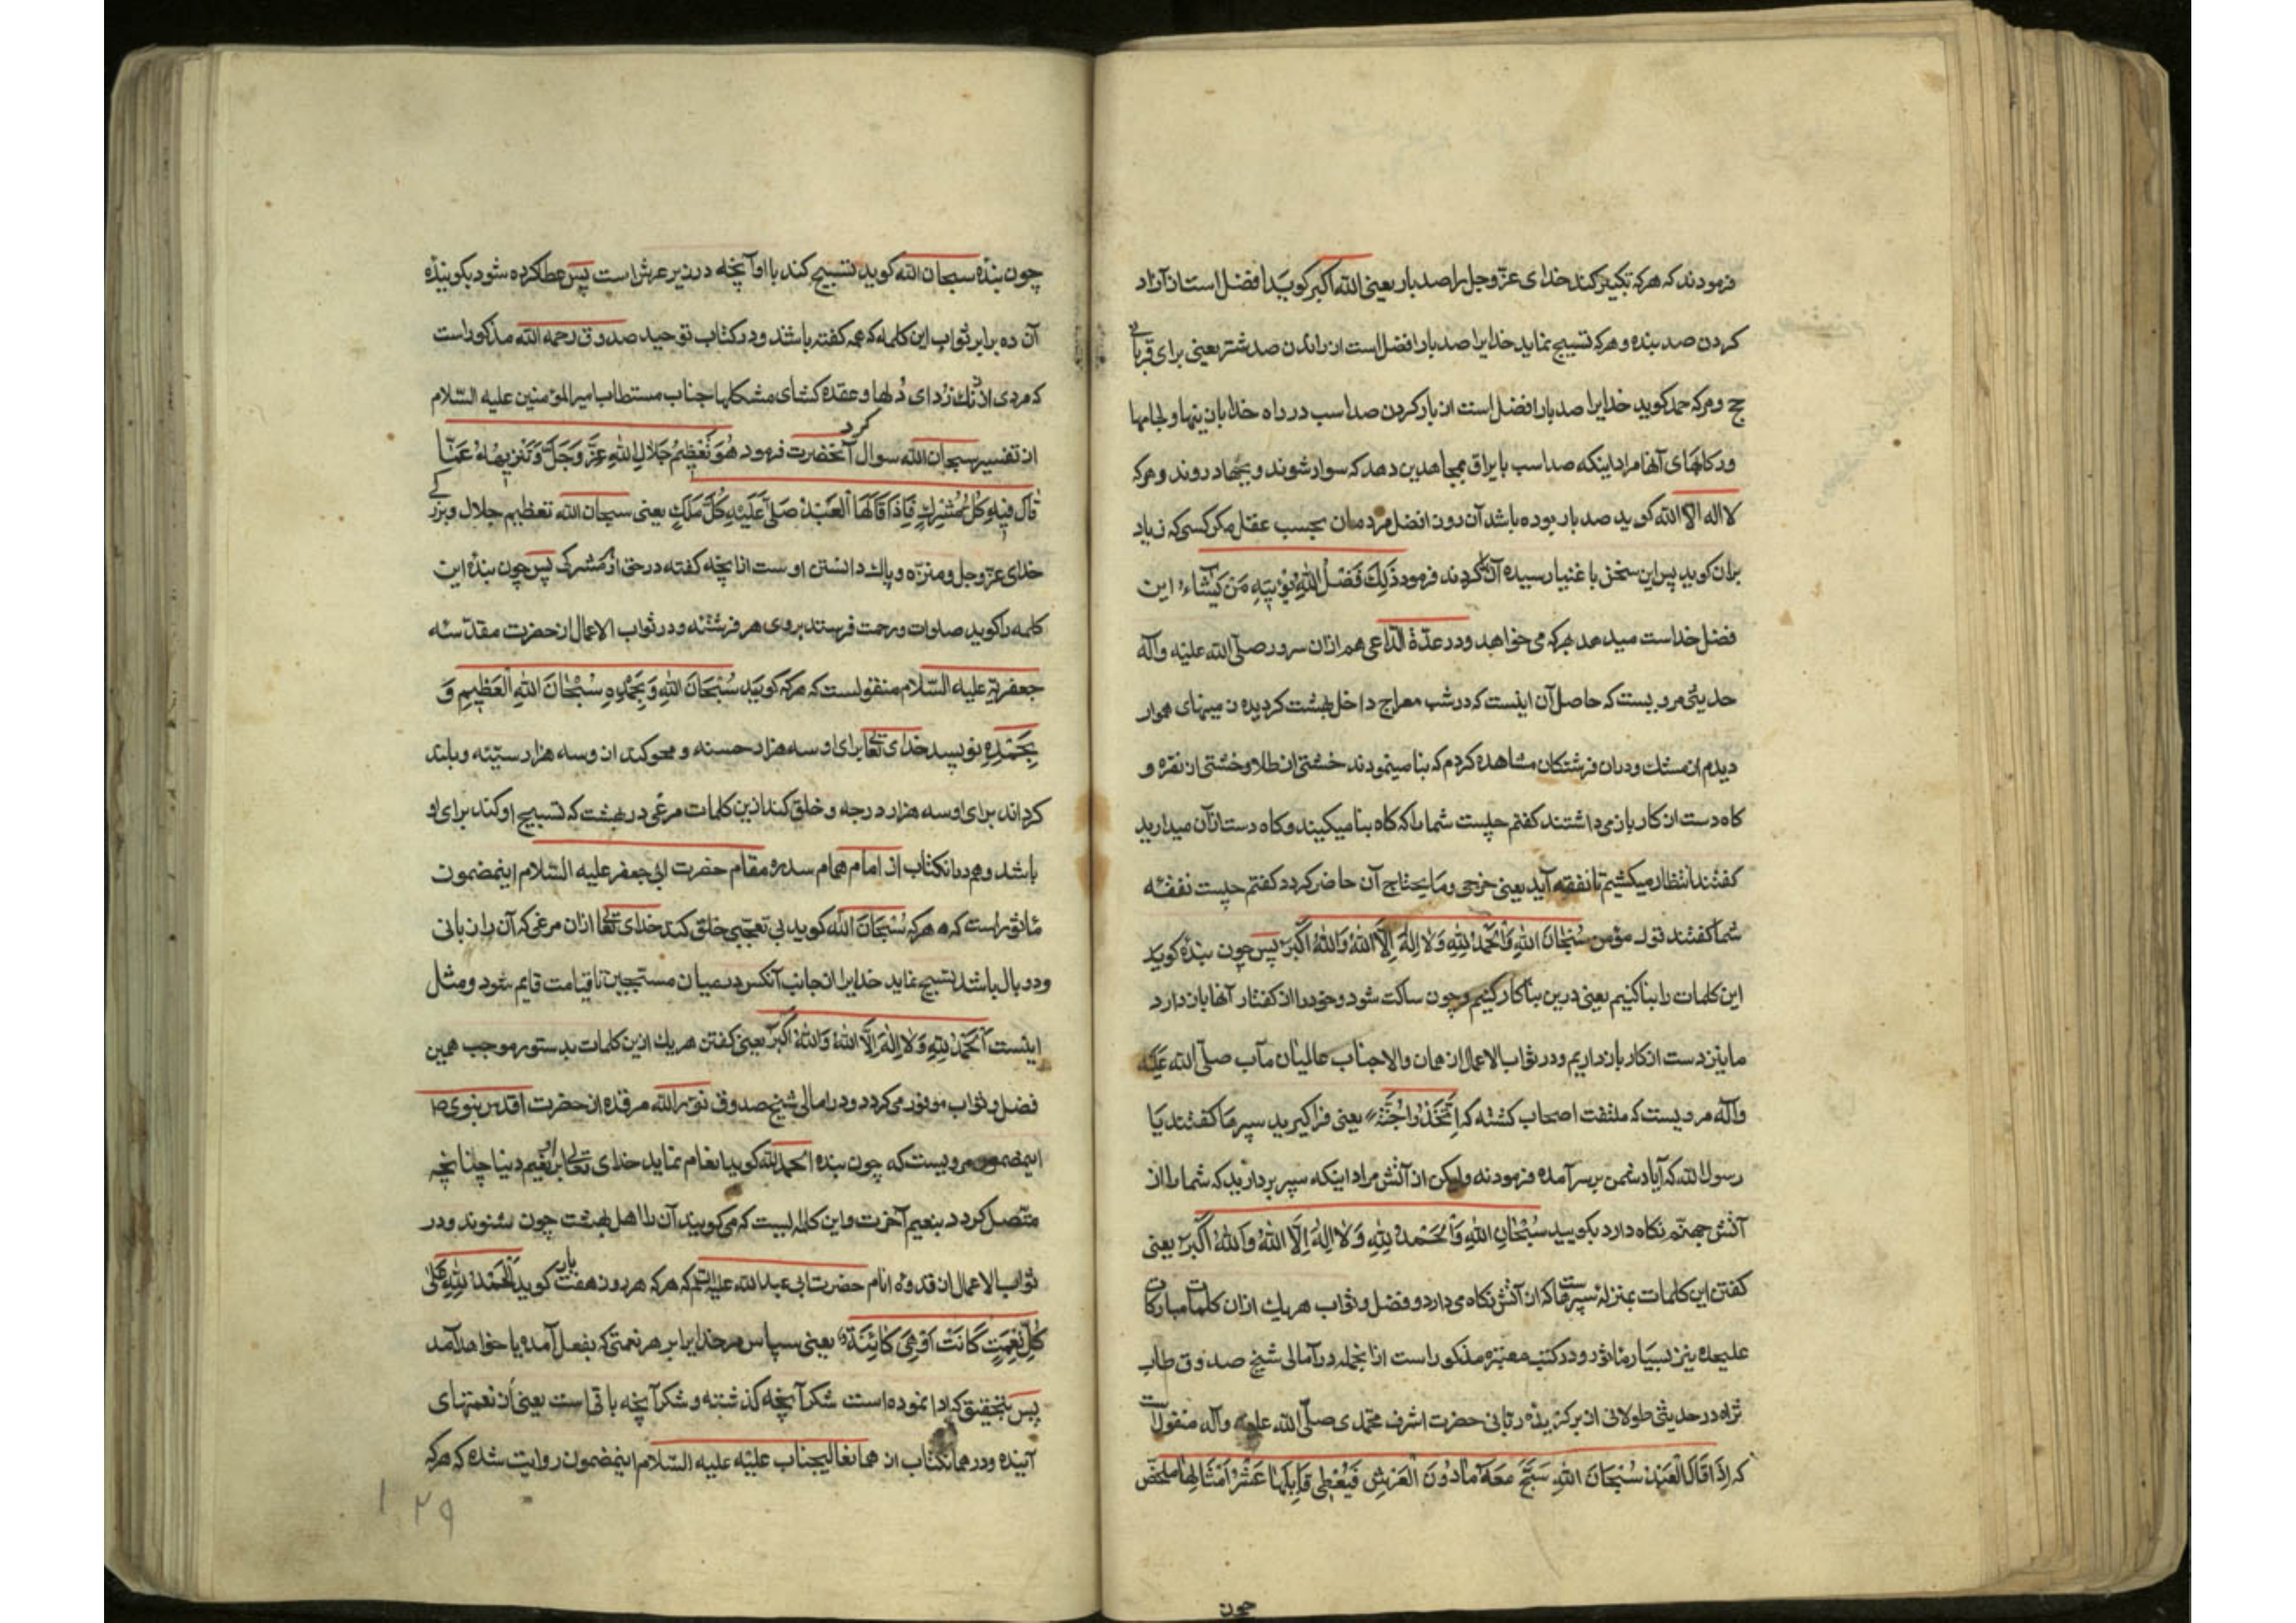 فرمودند که هرکه تکبیر کند خدای عزّ وجل را صد بار یعنی الله اکبر کوید افضل است از آزاد
کردن صد بنده و هرکه تسبیح نماید خدایرا صد بار افضل است از راندن صد شتر یعنی برای قربانی
حج و هرکه حمد کوید خدایرا صد بار افضل است از بار کردن صد اسب در راه خدا با زینها و لجامها
ورکابهای آنها مراد اینکه صد اسب با یراق بمجاهدین دهد که سوار شوند و بجهاد روند و هرکه
لا اله الا الله کوید صد بار بوده باشد آن روز افضل مردمان بحسب عمل مکر کسی که زیاد
بران کوید پس این سخن باغنیا رسیده آن کردند فرمود ذَلِكَ فَضْلُ اللهِ يُؤْتِيهِ مَنْ يَشَاءُ این
فضل خداست میدهد بهرکه می خواهد ودر عدّة الدّاعی هم ازان سرور صلّی الله علیه وآله
حدیثی مرویست که حاصل آن اینست که در شب معراج داخل بهشت کردیده زمینهای هموار
دیدم از مشك ودران فرشتکان مشاهده کردم که بنا مینمودند خشتی از طلا وخشتی از نقره و
کاه دست از کار باز می داشتند کفتم چیست شما را که کاه بنا میکیند وکاه دست ازآن میدارید
کفتند انتظار میکشیم تا نفقه آید یعنی خرجی وما یحتاج آن حاضر کردد کفتم چیست نفقه
شما کفتند قول مؤمن سُبْحَانَ اللهِ وَالْحَمْدُ لِلّٰهِ وَلَا اِلٰهَ اِلَّا اللهُ وَاللهُ اَكْبَرُ پس چون بنده کوید
این کلمات را بنا کنیم یعنی درین بنا کار کنیم و چون ساکت شود وخود را از کفتار آنها باز دارد
ما نیز دست از کار باز داریم ودر ثواب الاعمال از همان والا جناب عالیشان مآب صلّی الله علیه
وآله مرویست که ملتفت اصحاب کشته که اِتَّخِذُوا جُنَّةً یعنی فرا کیرید سپر ما کفتند یا
رسول الله که آیا دشمن بر سر آمده فرمود نه ولیکن از آتش مراد اینکه سپر بردارید که شما را از
آتش جهنّم نکاه دارد بکویید سُبْحَانَ اللهِ وَالْحَمْدُ لِلّٰهِ وَلَا اِلٰهَ اِلَّا اللهُ وَاللهُ اَكْبَرُ یعنی
کفتن این کلمات بمنزلۀ سپریست که از آتش نکاه می دارد و فضل و ثواب هریك ازان کلمات مبارکات
علیحده نیز بسیار ماثور ودر کتب معتبره مذکور است ازانجمله در امالی شیخ صدوق طاب
ثراه در حدیثی طولانی از برکزیدۀ ربّانی حضرت اشرف محمّدی صلّی الله علیه وآله منقول است
که اِذَا قَالَ الْعَبْدُ سُبْحَانَ اللهِ سَبَّحَ مَعَهُ مَا دُونَ الْعَرْشِ فَيُعْطِي قَائِلَهَا عَشْرَ اَمْثَالِهَا ملخّص
چون
چون بنده سبحان الله کوید تسبیح کند با او آنچه در زیر عرش است پس عطا کرده شود بکویندۀ
آن ده برابر ثواب این کلمه که همه کفته باشند ودر کتاب توحید صدوق رحمه الله مذکور است
که مردی از زنك زدای دلها و عقده کشای مشکلها جناب مستطاب امیر المؤمنین علیه السّلام
از تفسیر سبحان الله سوال کرد آنحضرت فرمود هُوَ تَعْظِيمُ جَلَالِ اللهِ عَزَّ وَجَلَّ وَتَنْزِيهُهُ عَمَّا
قَالَ فِيهِ كُلُّ مُشْرِكٍ فَاِذَا قَالَهَا الْعَبْدُ صَلَّى عَلَيْهِ كُلُّ مَلَكٍ یعنی سبحان الله تعظیم جلال وبزرکی
خدای عزّ وجل ومنزّه وپاك دانستن اوست ازانچه کفته در حق او مشرکی پس چون بنده این
کلمه را کوید صلوات ورحمت فرستد بروی هر فرشته ودر ثواب الاعمال از حضرت مقدّسه
جعفریه علیه السّلام منقولست که هرکه کوید سُبْحَانَ اللهِ وَبِحَمْدِهِ سُبْحَانَ اللهِ الْعَظِيمِ وَ
بِحَمْدِهِ نویسد خدای تعالی برای او سه هزار حسنه ومحو کند ازو سه هزار سیّئه وبلند
کرداند برای او سه هزار درجه وخلق کند ازین کلمات مرغی در بهشت که تسبیح او کند برای او
باشد وهم درانکتاب از امام همام سدره مقام حضرت ابی جعفر علیه السّلام اینمضمون
ماثور است که هرکه سُبْحَانَ الله کوید بی تعجّبی خلق کند خدای تعالی ازان مرغی که آن را زبانی
ودو بال باشد تسبیح نماید خدایرا از جانب آنکس در میان مسبّحین تا قیامت قایم شود ومثل
اینست اَلْحَمْدُ لِلّٰهِ وَلَا اِلٰهَ اِلَّا اللهُ وَاللهُ اَكْبَرُ یعنی کفتن هریك ازین کلمات بدستور موجب همین
فضل و ثواب موفور می کردد ودر امالی شیخ صدوق نوّر الله مرقده از حضرت اقدس نبوی ص
اینمضمون مرویست که چون بنده الحمد لله کوید انعام نماید خدای تعالی براو نعیم دنیا چنانچه
متّصل کردد بنعیم آخرت واین کلمه ایست که می کویند آن را اهل بهشت چون شنوند ودر
ثواب الاعمال از قدوۀ انام حضرت ابی عبد الله علیه السّلام که هرکه هر روز هفت بار کوید اَلْحَمْدُ لِلّٰهِ عَلَى
كُلِّ نِعْمَةٍ كَانَتْ اَوْ هِيَ كَائِنَةٌ یعنی سپاس مر خدایرا بر هر نعمتی که بفعل آمده یا خواهد آمد
پس بتحقیق که ادا نموده است شکر آنچه کذشته و شکر آنچه باقی است یعنی از نعمتهای
آینده ودر همانکتاب از همانعالیجناب علیّه علیه السّلام اینمضمون روایت شده که هرکه
۱۲۹